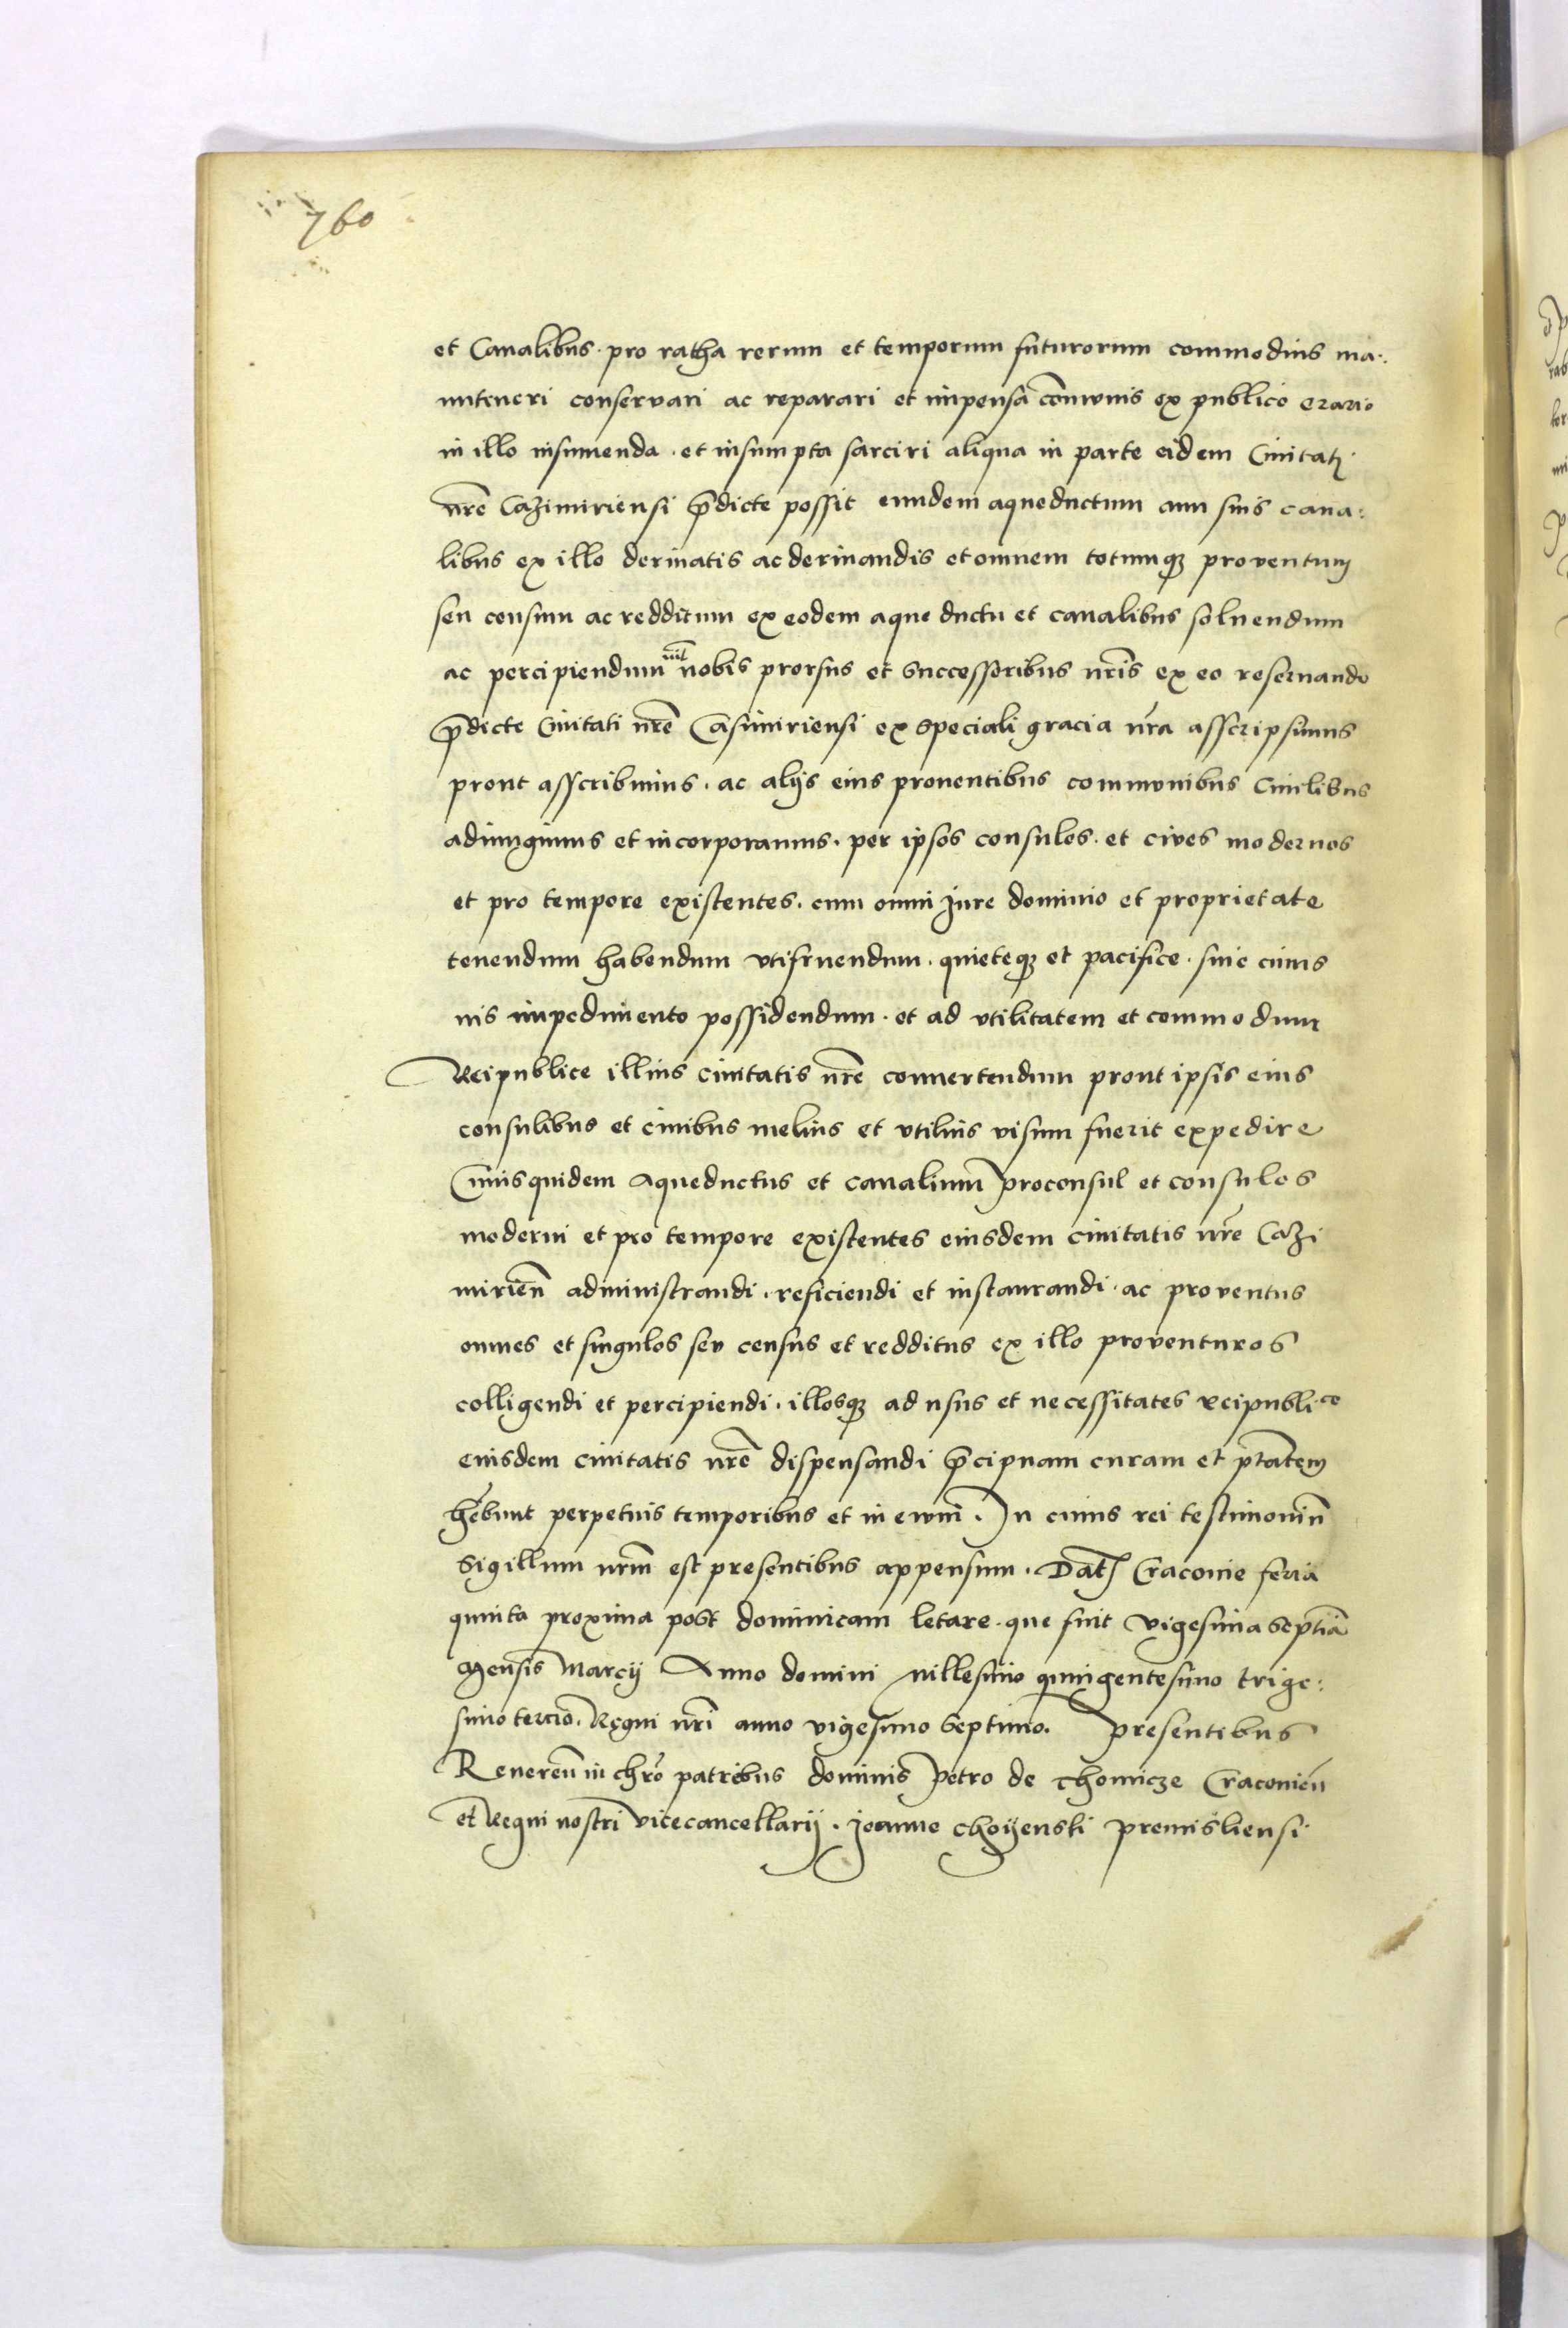 760
et Canalibus. pro ratha rerum et temporum futurorum commodius ma:
nuteneri conservari ac reparari et impensa cõmunis ex publico erario
in illo insumenda. et insumpta sarciri aliqua in parte eidem Civitati
nr̃e Cazimiriensi p̃dicte possit eundem aqueductum cum suis cana:
libus ex illo derivatis ac derivandis et omnem totumq; proventum
seu censum ac redditum ex eodem aque ductu et canalibus solvendum
ac percipiendum nil nobis prorsus et successoribus nr̃is ex eo reservando
p̃dicte Civitati nr̃e Casimiriensi ex speciali gracia nr̃a asscripsimus
prout asscribimus. ac alijs eius proventibus communibus Civilibus
adiungimus et incorporamus. per ipsos consules. et cives modernos
et pro tempore existentes. cum omni Jure dominio et proprietate
tenendum habendum utifruendum. quieteq; et pacifice. sine cuius
uis impedimento possidendum. et ad utilitatem et commodum
Reipublice illius civitatis nr̃e convertendum prout ipsis eius
consulibus et civibus melius et utilius visum fuerit expedire
Cuiusquidem Aqueductus et canalium proconsul et consules
moderni et pro tempore existentes eiusdem civitatis nr̃e Cazi
mirieñ administrandi. reficiendi et instaurandi. ac proventus
omnes et singulos seu census et redditus ex illo proventuros
colligendi et percipiendi. illosq; ad usus et necessitates reipublice
eiusdem civitatis nr̃e dispensandi p̃cipuam curam et p̃tãtem
hẽbunt perpetuis temporibus et in evum. In cuius rei testimoniũ
Sigillum nr̃m est presentibus appensum. Dat Cracovie feria
quinta proxima post dominicam letare. que fuit vigesima septiã
Mensis Marcij Anno domini millesimo quingentesimo trige:
simo tercio. Regni nr̃i anno vigesimo septimo. presentibus
Revereñ in chr̃o patribus dominis Petro de Thomicze Cracovieñ
et Regni nostri vicecancellarij. Joanne Choyenski premisliensi